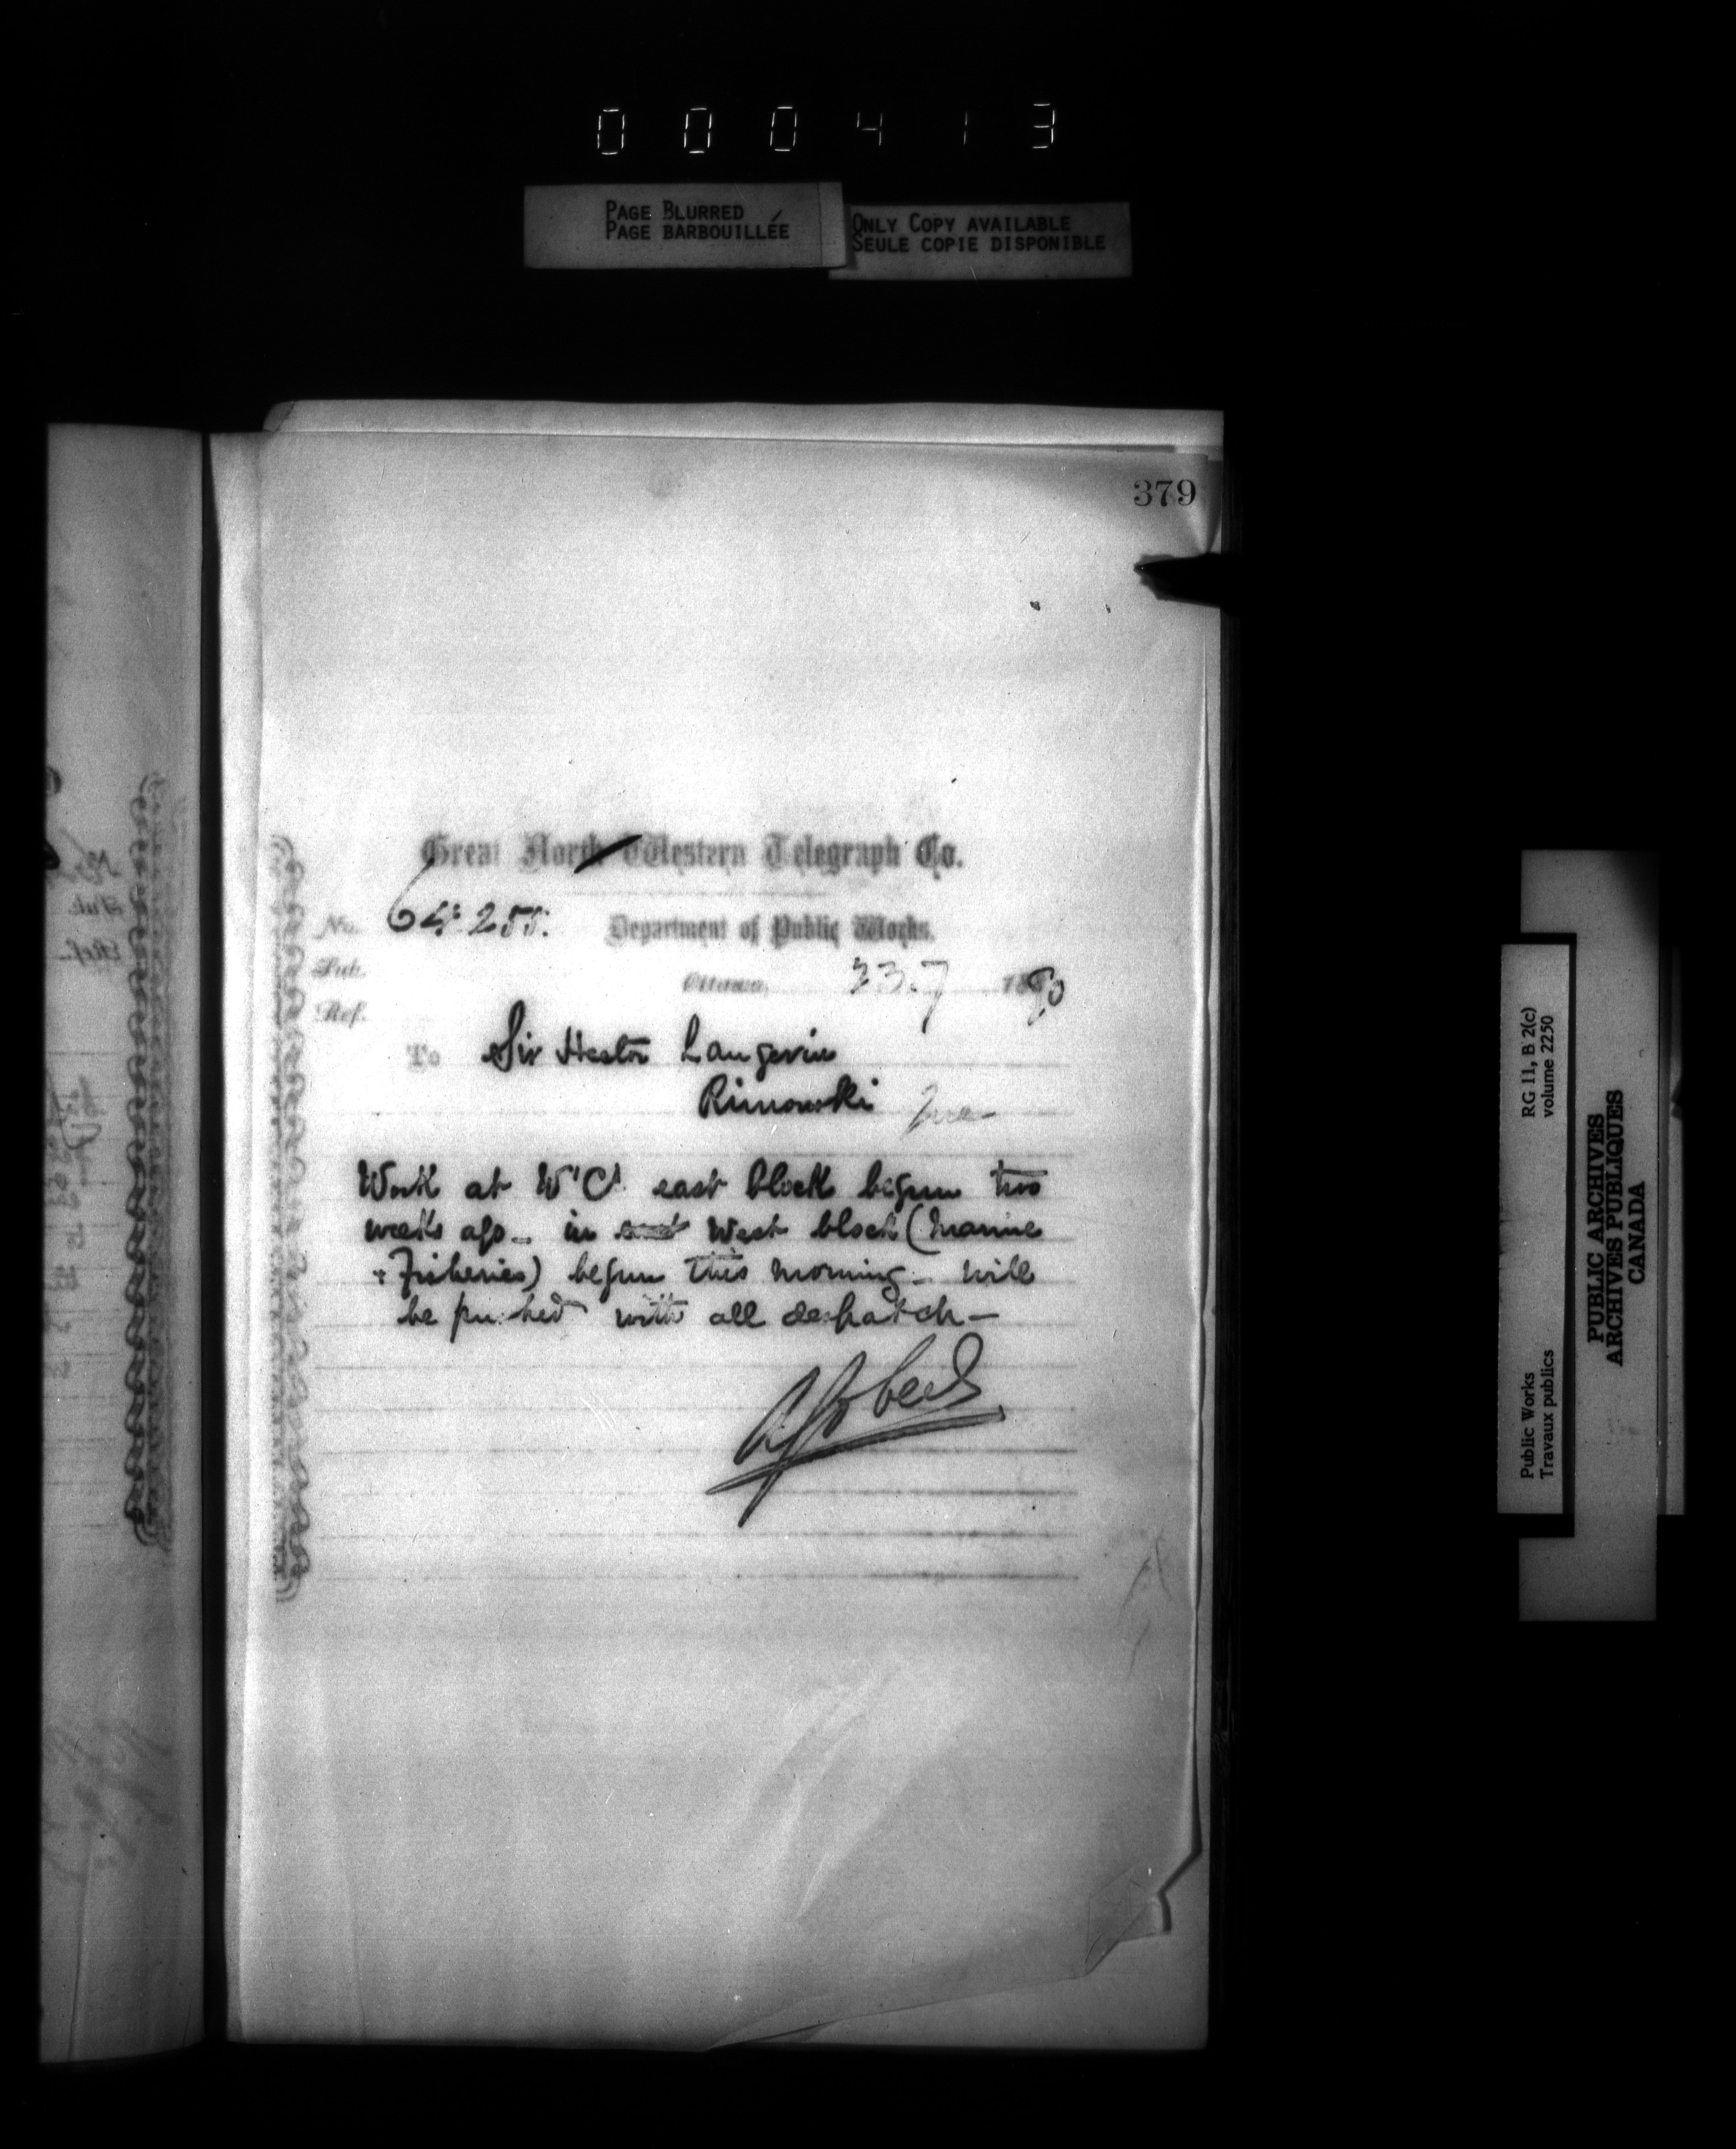 000413
PAGE BLURRED
PAGE BARBOUILLÉE
ONLY COPY AVAILABLE
SEULE COPIE DISPONIBLE
379
Great North Western Telegraph Co.
No. 255. Department of Public Works.
Sub.
Ottawa, 23.7 1890
Ref.
To Sir Hector Langevin
Rimouski
Work at W'C' east block begun two
weeks ago - in west block (Marine
+ Fisheries) begun this morning - will
be pushed with all despatch -
Public Works
Travaux publics
RG 11, B 2(c)
volume 2250
PUBLIC ARCHIVES
ARCHIVES PUBLIQUES
CANADA